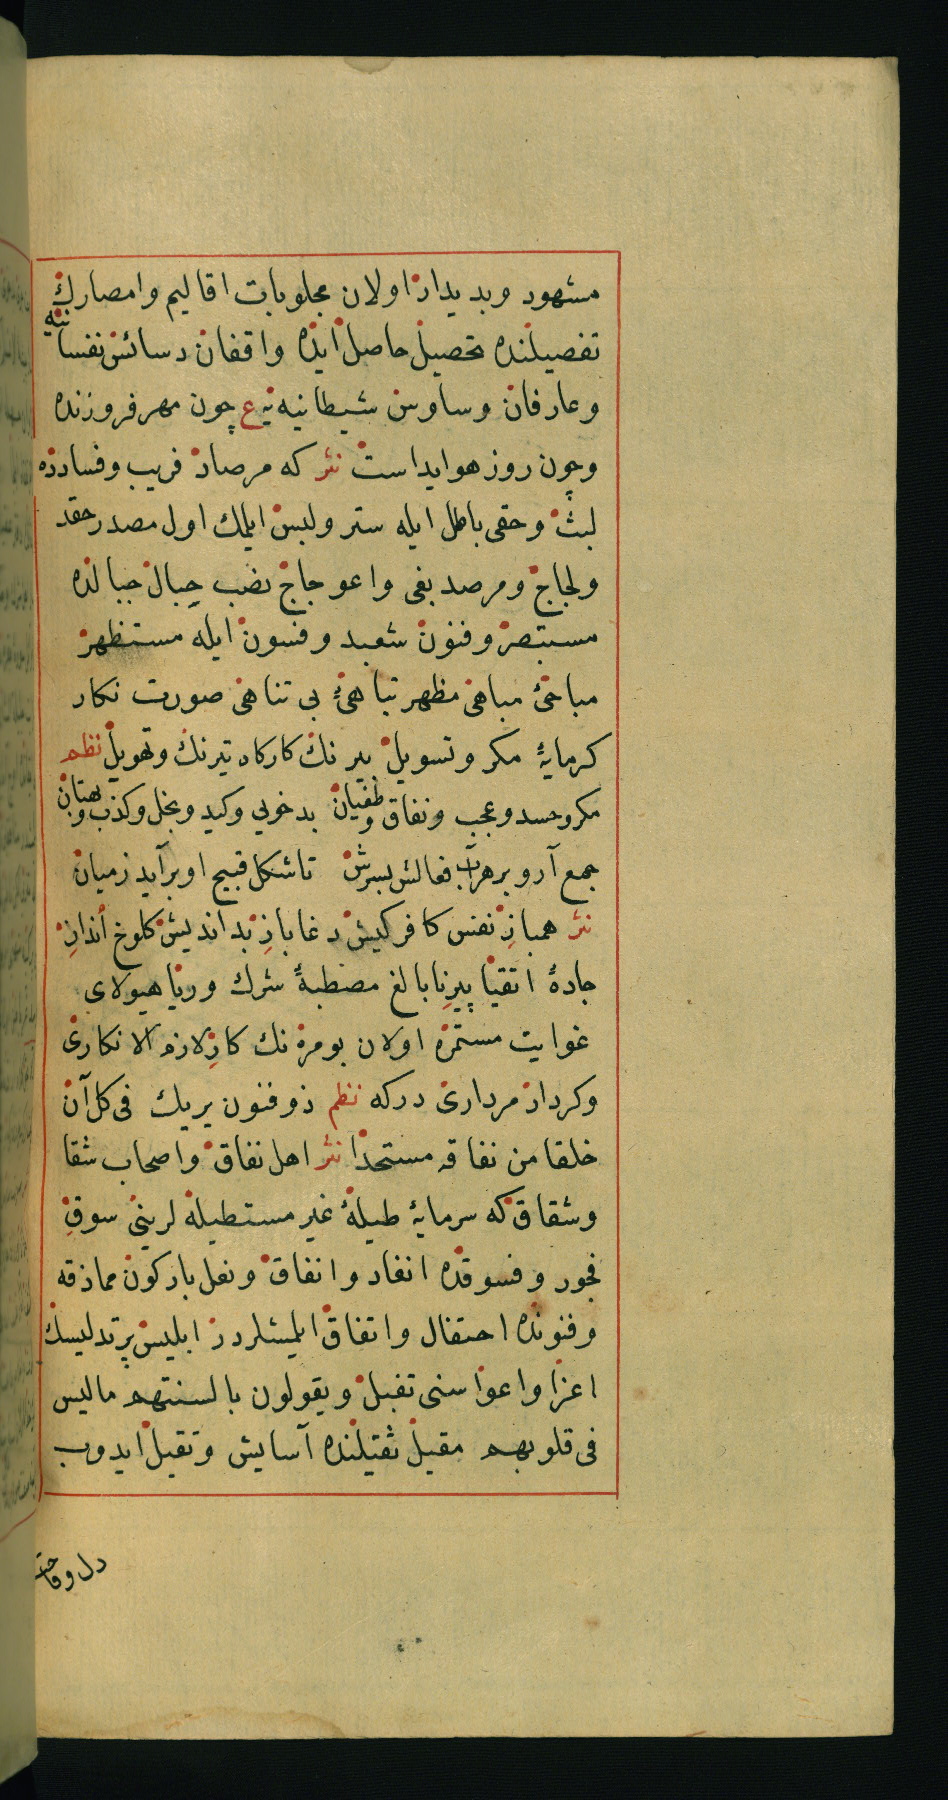 مشهود وبديدار اولان مجلوبات اقاليم وامصارك
تفصيلنده تحصيل حاصل ايده واقفان دسائس نفسانيه
وعارفان وساوس شيطانيه يه ع چون مهر فروزنده
وچون روز هوايداست نثر كه مرصاد فريب وفسادده
لبث وحقى باطل ايله ستر ولبس ايلمك اول مصدر حقد
ولجاج ومرصد بغى واعوجاج نصب حبال جبالده
مستبصر وفنون شعبد وفسون ايله مستظهر
مباحئ مباهى مظهر تباهئ بى تناهى صورت نكار
كرمايۀ مكر وتسويل بيرنك كاركاه تيرنك وتهويل نظم
مكر وحسد وعجب ونفاق وطغيان بدخويى وكيد وبخل وكذب وبهتان
جمع آر وبر هر آب فعالش بسرش تا شكل قبيح او برآيد زميان
نثر همباز نفس كافر كيش دغاباز بد انديش كلوخ انداز
جادۀ اتقيا پير نابالغ مصطبۀ شرك وريا هيولاى
غوايت مستمره اولان بو مره نك كار لازم الانكارى
وكردار مردارى دركه نظم ذو فنون يريك فى كل آن
خلقا من نفاقه مستحدا نثر اهل نفاق واصحاب شقا
وشقاق كه سرمايۀ طيلۀ غير مستطيله لرينى سوق
فجور وفسوقده انفاد وانفاق ونعل باركون مماذقه
وفنونده احتفال واتفاق ايلمشلردر ابليس پر تدليسك
اعزا واغوا سنى تقبل ويقولون بالسنتهم ماليس
فى قلوبهم مقيل ثقيلنده آسايش وتقيل ايدوب
دل وقاحت